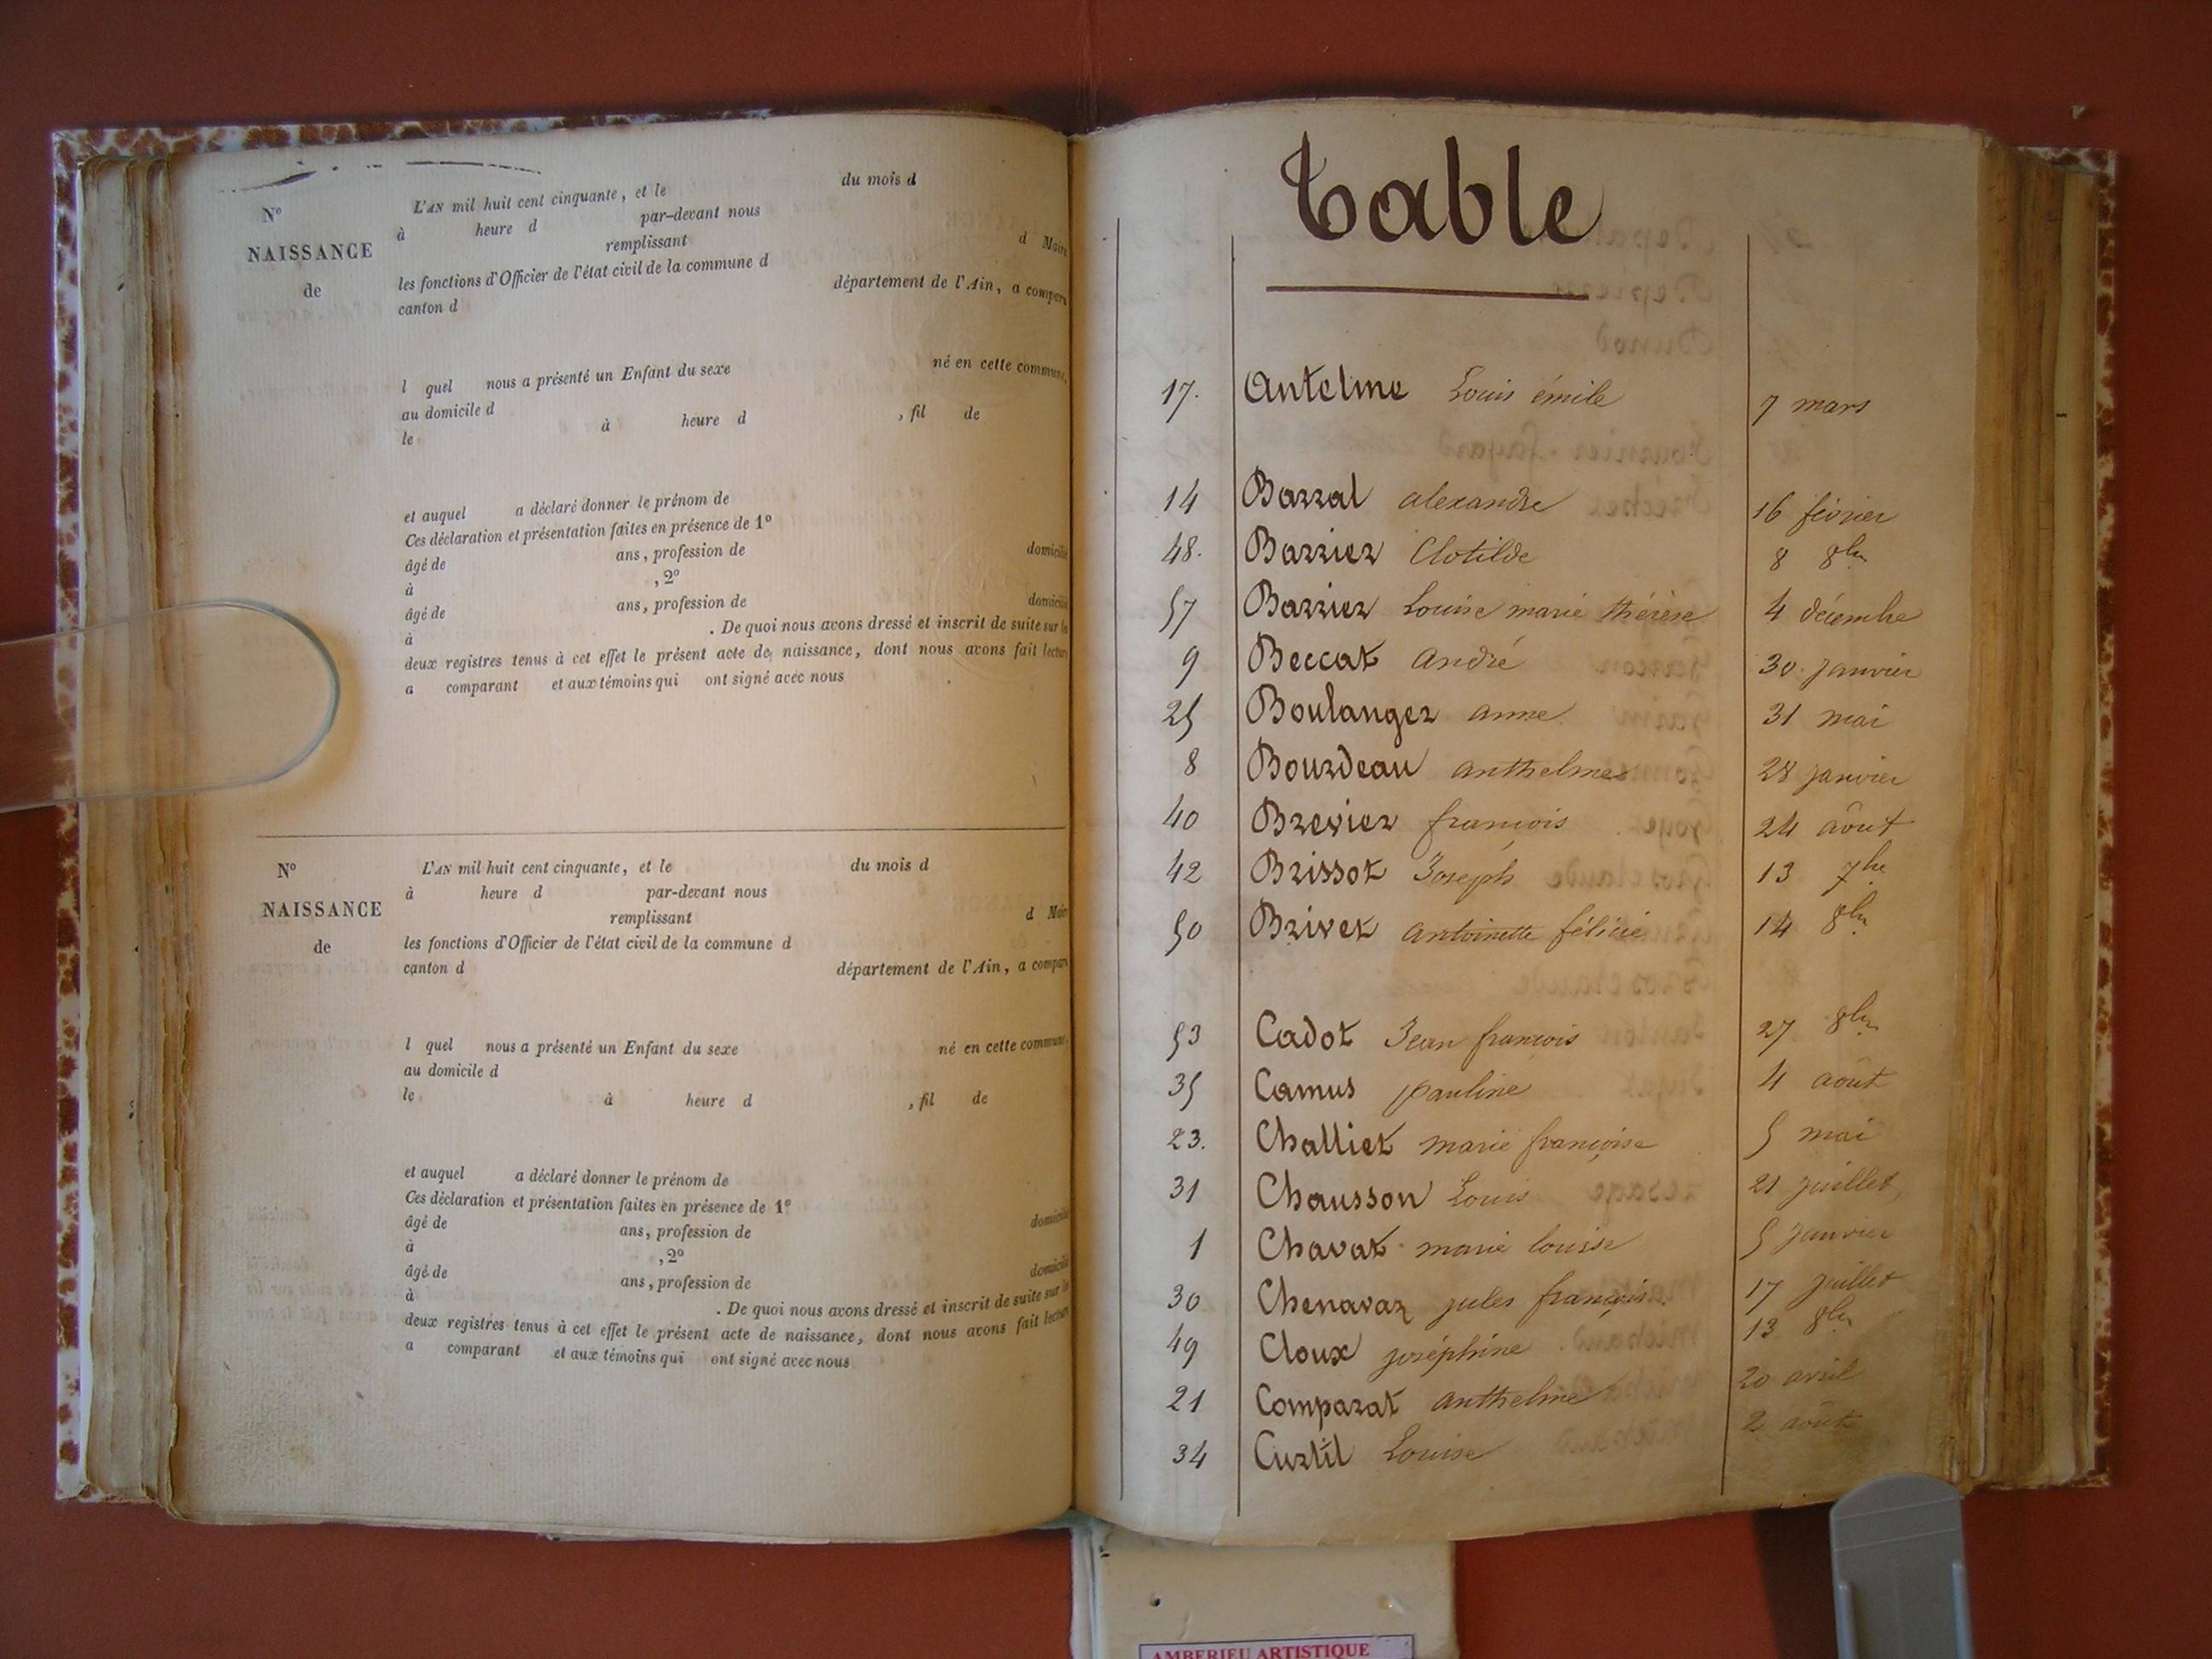 N° L'AN mil huit cent cinquante, et le du mois d
à heure d par-devant nous
NAISSANCE remplissant d Maire
de les fonctions d'Officier de l'état civil de la commune d
canton d département de l'Ain, a comparu
l quel nous a présenté un Enfant du sexe né en cette commune,
au domicile d
le à heure d , fil de
et auquel a déclaré donner le prénom de
Ces déclaration et présentation faites en présence de 1°
âgé de ans, profession de domicilié
à , 2°
âgé de ans, profession de domicilié
à . De quoi nous avons dressé et inscrit de suite sur les
deux registres tenus à cet effet le présent acte de naissance, dont nous avons fait lecture
a comparant et aux témoins qui ont signé avec nous
N° L'AN mil huit cent cinquante, et le du mois d
à heure d par-devant nous
NAISSANCE remplissant d Maire
de les fonctions d'Officier de l'état civil de la commune d
canton d département de l'Ain, a comparu
l quel nous a présenté un Enfant du sexe né en cette commune
au domicile d
le à heure d , fil de
et auquel a déclaré donner le prénom de
Ces déclaration et présentation faites en présence de 1°
âgé de ans, profession de domicilié
à , 2°
âgé de ans, profession de domicilié
à . De quoi nous avons dressé et inscrit de suite sur les
deux registres tenus à cet effet le présent acte de naissance, dont nous avons fait lecture
a comparant et aux témoins qui ont signé avec nous
Table
17. Antelme Louis émile 7 mars
14 Barral alexandre 16 février
48. Barrier Clotilde 8 8bre
57 Barrier Louise marie thérèse 4 décembre
9 Beccat andré 30 janvier
25 Boulanger anne 31 mai
8 Bourdeau anthelme 28 janvier
40 Brevier françois 24 août
42 Brissot Joseph 13 7bre
50 Brivet antoinette félicie 14 8bre
53 Cadot Jean françois 27 8bre
35 Camus pauline 4 août
23. Challiet marie françoise 5 mai
31 Chausson Louis 21 juillet
1 Chavat marie louise 5 janvier
30 Chenavaz jules françois. 17 juillet
49 Cloux joséphine 13 8bre
21 Comparat anthelme 20 avril
34 Curtil Louise 2 août
AMBERIEU ARTISTIQUE